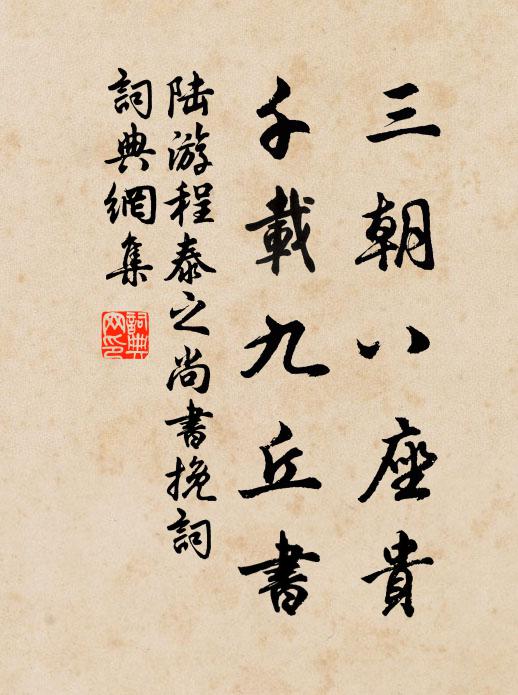 三朝八座貴
千載九丘書
陸游程泰之尚書挽詞
詞典網集
詞典
网印